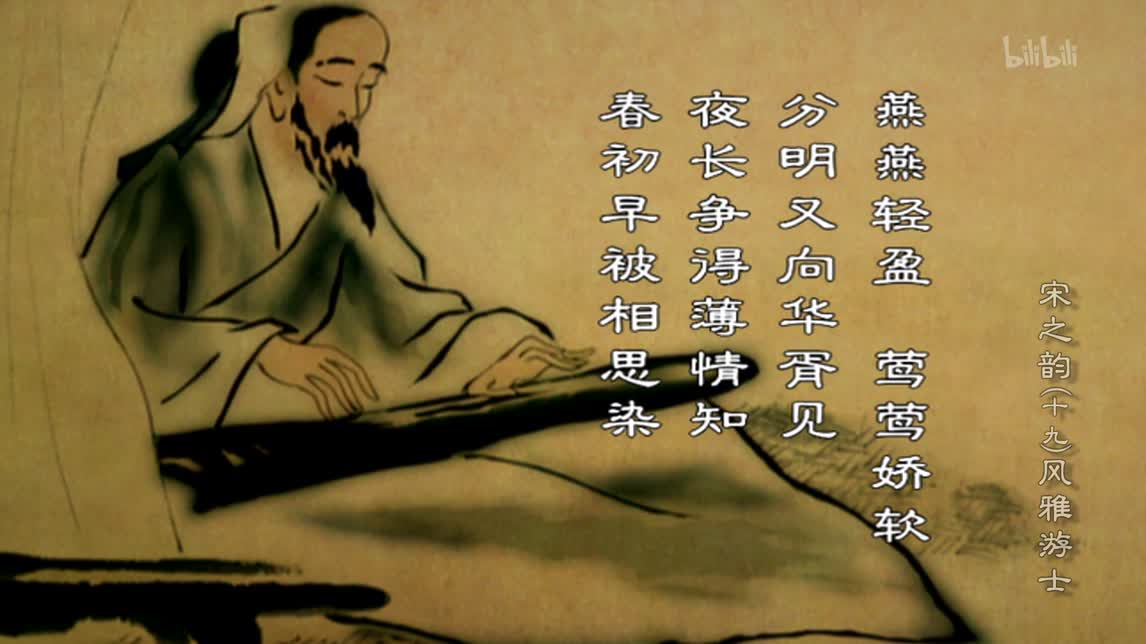 bilibili
燕燕轻盈 莺莺娇软
分明又向华胥见
夜长争得薄情知
春初早被相思染
宋之韵(十九)风雅游士